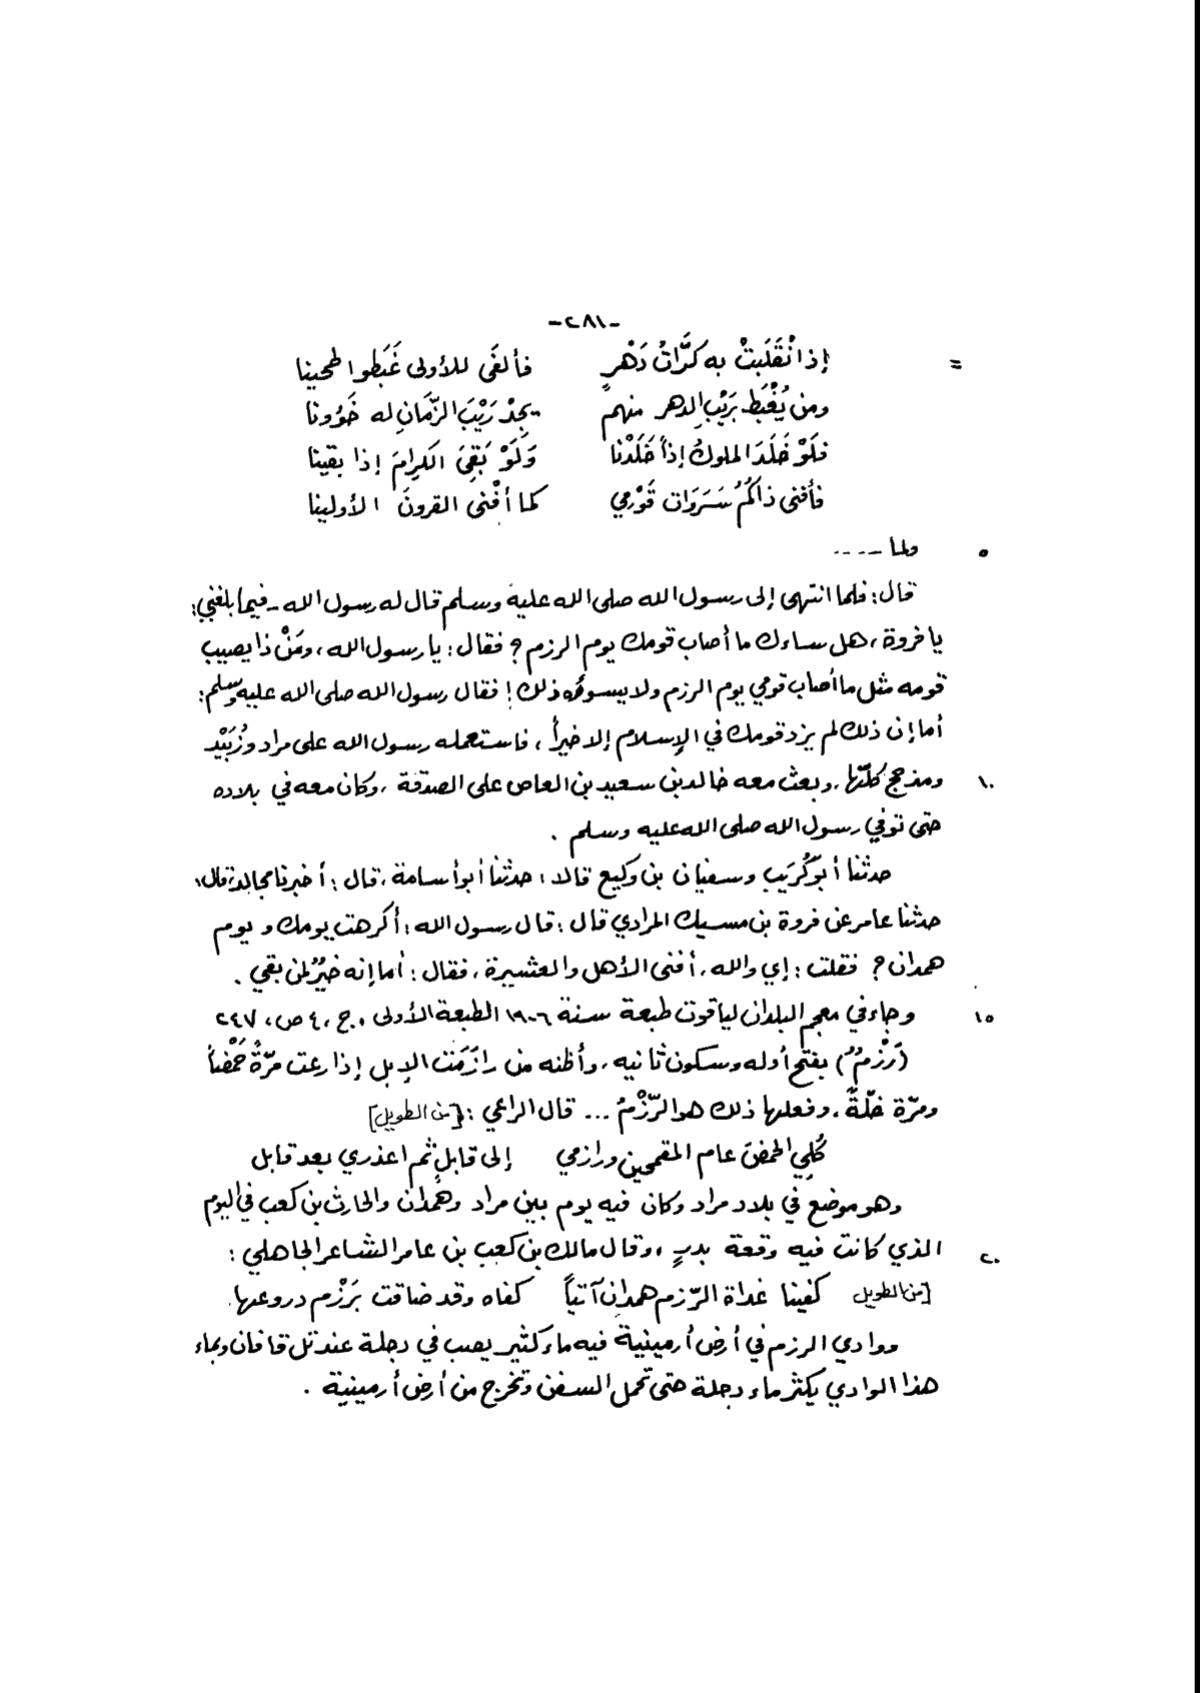 -٢٨١-
= إذ انْقَلَبتْ به كَرَّاتُ دَهْرٍ فألفَى للأولى غَبَطوا طحينا
ومن يُغْبَط بَريْبِ الدهر منهم يجدْ رَيْبَ الزَّمَانِ له خَؤونا
فلَوْ خَلَدَ الملوكُ إذاً خَلَدْنا وَلَوْ بَقِيَ الكرامَ إذا بقينا
فأفنى ذاكُمُ سَرَوَات قَوْمِي كما أفْنى القرونَ الأولينا
٥ ولما ----
قال: فلما انتهى إلى رسول الله صلى الله عليه وسلم قال له رسول الله - فيما بلغني:
يا فروة، هل ساءك ما أصاب قومك يوم الرزم؟ فقال: يا رسول الله، ومَنْ ذا يصيب
قومه مثل ما أصاب قومي يوم الرزم ولا يسوؤه ذلك! فقال رسول الله صلى الله عليه وسلم:
أما إن ذلك لم يزد قومك في الإسلام إلا خيراً، فاستعمله رسول الله على مراد وزُبَيْد
١٠ ومذحج كلّها، وبعث معه خالد بن سعيد بن العاص على الصدقة، وكان معه في بلاده
حتى توفي رسول الله صلى الله عليه وسلم .
حدثنا أبو كُرَيب وسفيان بن وكيع قالا: حدثنا أبو أسامة، قال: أخبرنا مجالد، قال:
حدثنا عامر عن فروة بن مسيك المرادي قال: قال رسول الله: أكرهت يومك ويوم
همدان؟ فقلت: إي والله، أفنى الأهل والعشيرة، فقال: أما إنه خيرٌ لمن بقي .
١٥ وجاء في معجم البلدان لياقوت طبعة سنة ١٩٠٦ الطبعة الأولى، ج، ٤ ص، ٢٤٧
(رَزْمٌ) بفتح أوله وسكون ثانيه، وأظنه من رازَمَت الإبل إذا رعت مرّةً حَمْضاً
ومرّة خلّةً، وفعلها ذلك هو الرّزْمُ ... قال الراعي: [من الطويل]
كُلِي الحمضَ عام المقحمين ورازمي إلى قابلٍ ثم اعذري بعد قابل
وهو موضع في بلاد مراد وكان فيه يوم بين مراد وهمدان والحارث بن كعب في اليوم
٢٠ الذي كانت فيه وقعة بدرٍ، وقال مالك بن كعب بن عامر الشاعر الجاهلي:
[من الطويل كفينا غداة الرّزم همدان آتياً كفاه وقد ضاقت بَرَزْم دروعها.
ووادي الرزم في أرض أرمينية فيه ماء كثير يصب في دجلة عند تل فافان وبماء
هذا الوادي يكثر ماء دجلة حتى تحمل السفن وتخرج من أرض أرمينية .